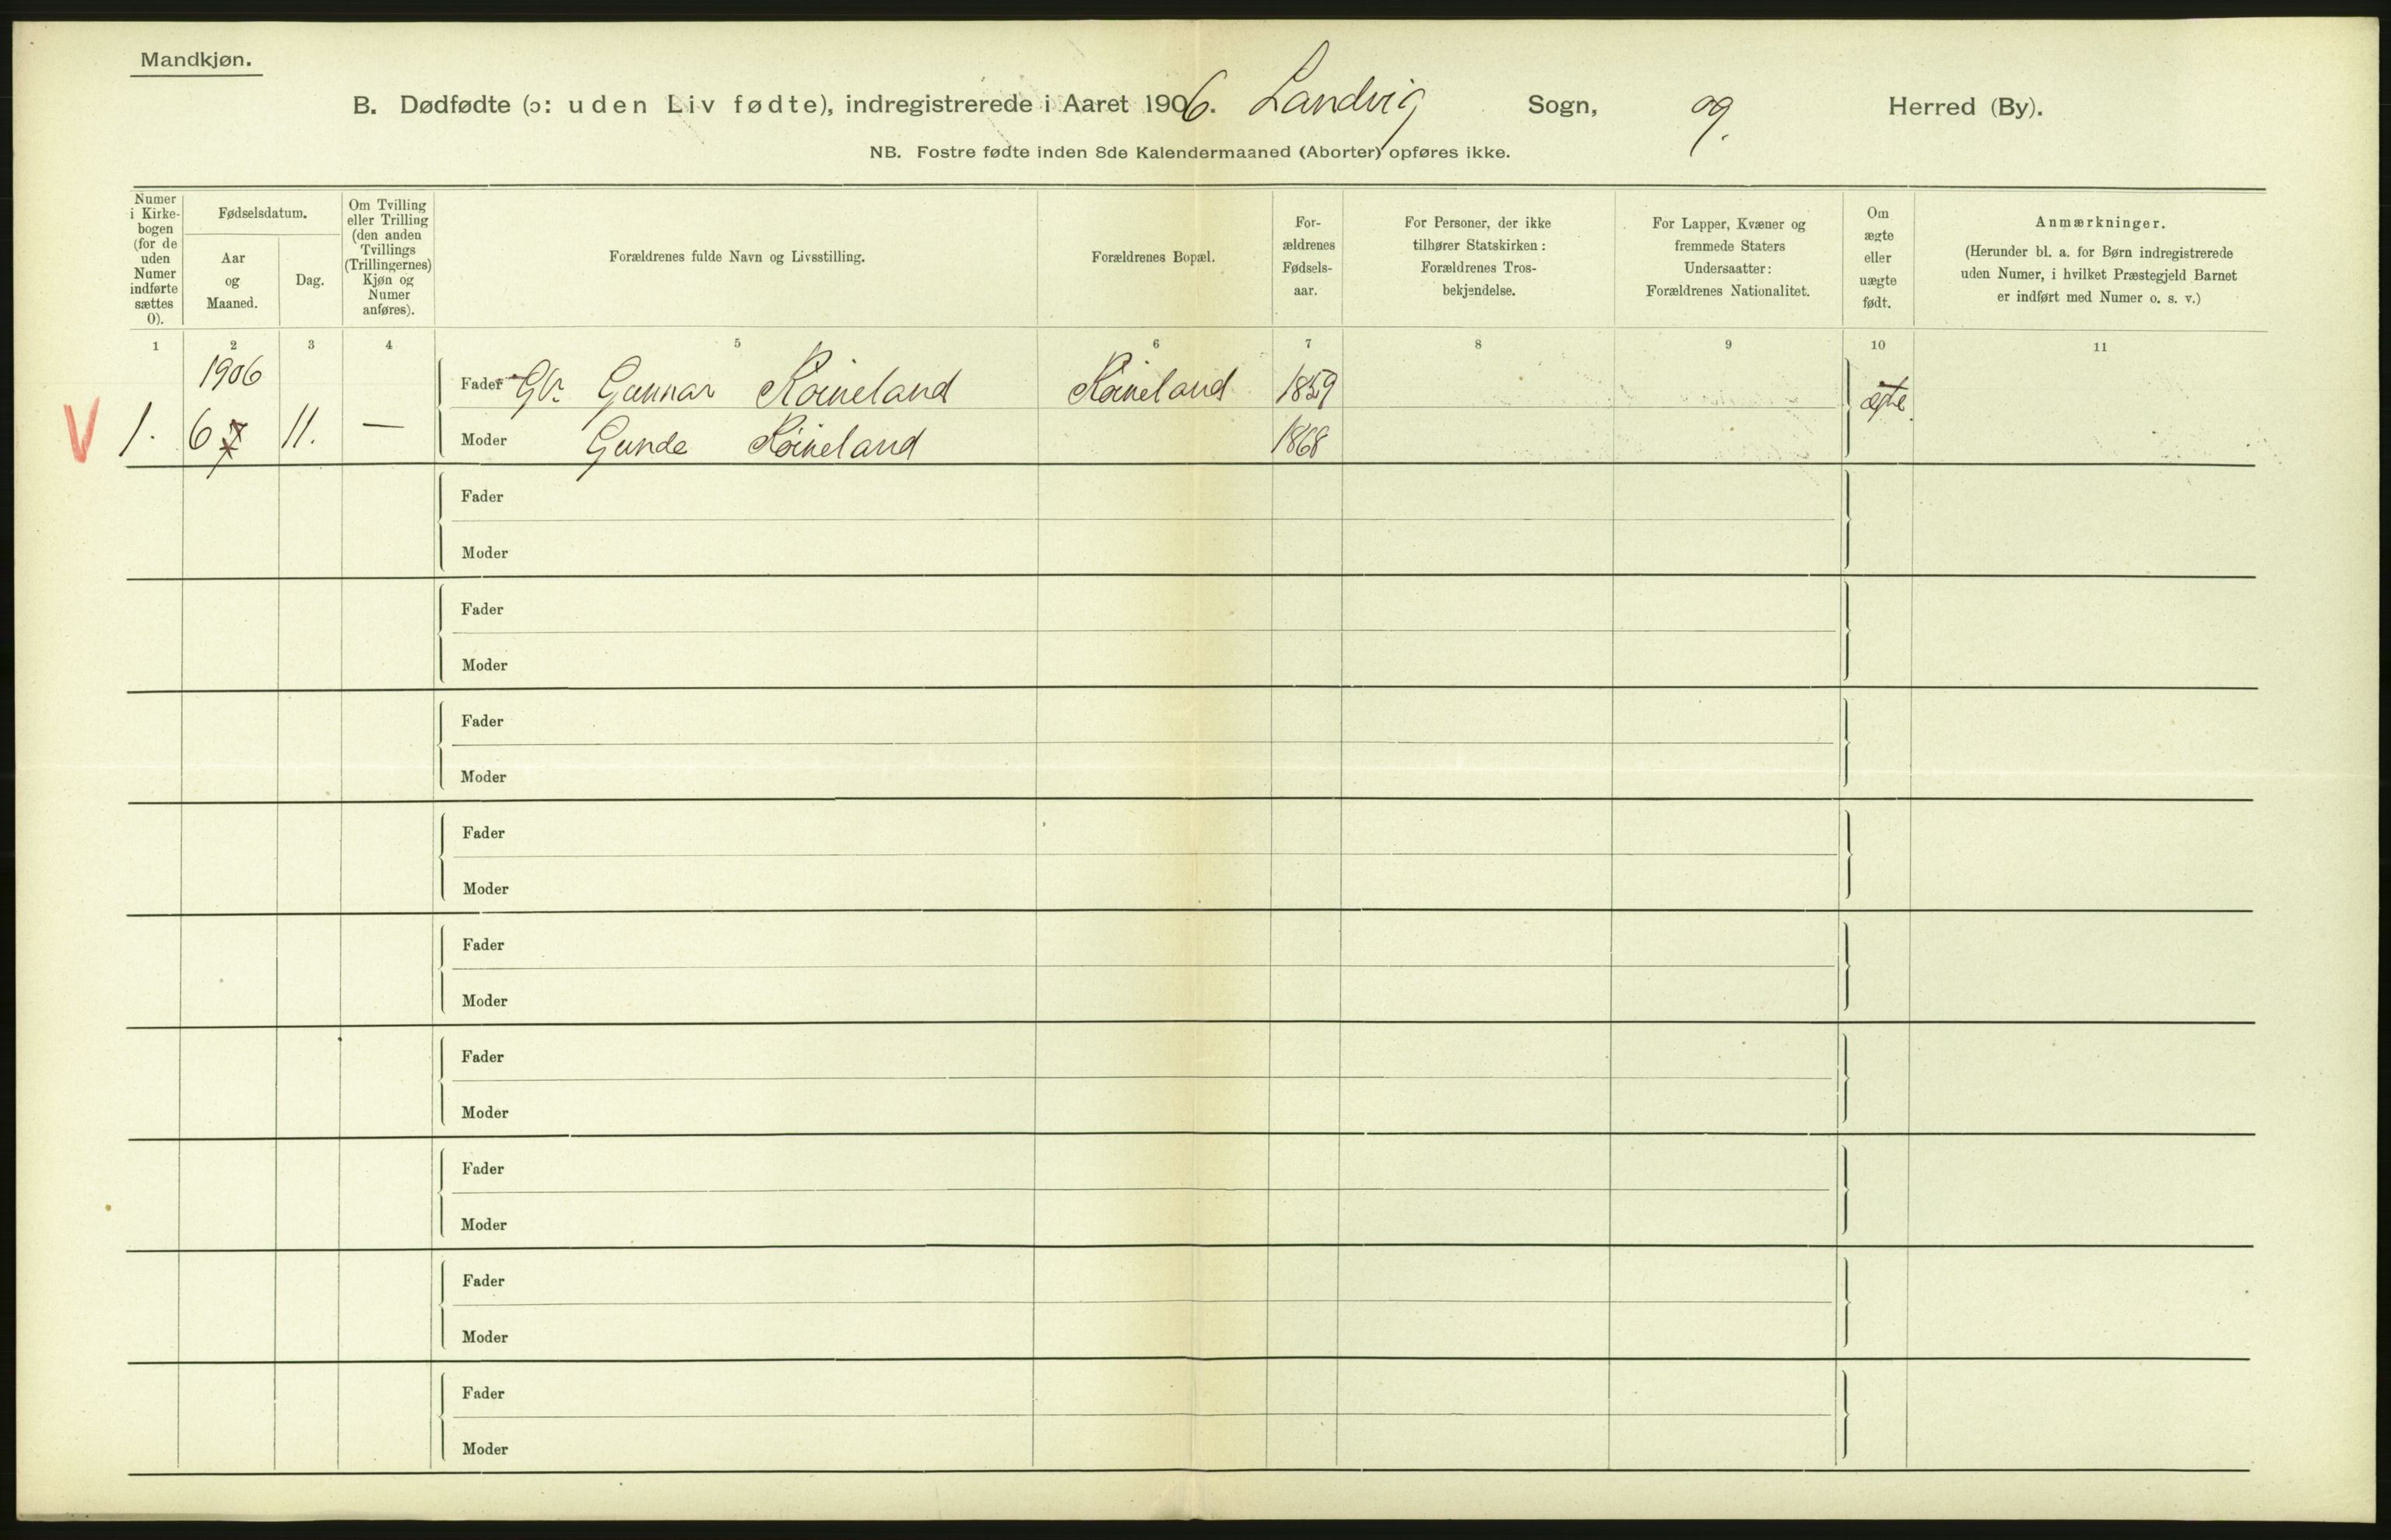 Mandkjøn.
B. Dødfødte (ɔ: uden Liv fødte), indregistrerede i Aaret 1906. Landvig Sogn, og Herred (By).
NB. Fostre fødte inden 8de Kalendermaaned (Aborter) opføres ikke.
Numer i Kirke-bogen (for de uden Numer indførte sættes 0).
Fødselsdatum.
Aar og Maaned.
Dag.
Om Tvilling eller Trilling (den anden Tvillings (Trillingernes) Kjøn og Numer anføres).
Forældrenes fulde Navn og Livsstilling.
Forældrenes Bopæl.
For-ældrenes Fødsels-aar.
For Personer, der ikke tilhører Statskirken: Forældrenes Tros-bekjendelse.
For Lapper, Kvæner og fremmede Staters Undersaatter: Forældrenes Nationalitet.
Om ægte eller uægte født.
Anmærkninger.
(Herunder bl. a. for Børn indregistrerede uden Numer, i hvilket Præstegjeld Barnet er indført med Numer o. s. v.)
1 2 3 4 5 6 7 8 9 10 11
1906
Fader Gbr. Gunnar Roineland Roineland 1859 ægte
V 1. 6 11. — Moder Gunde Roineland 1868
Fader
Moder
Fader
Moder
Fader
Moder
Fader
Moder
Fader
Moder
Fader
Moder
Fader
Moder
Fader
Moder
Fader
Moder